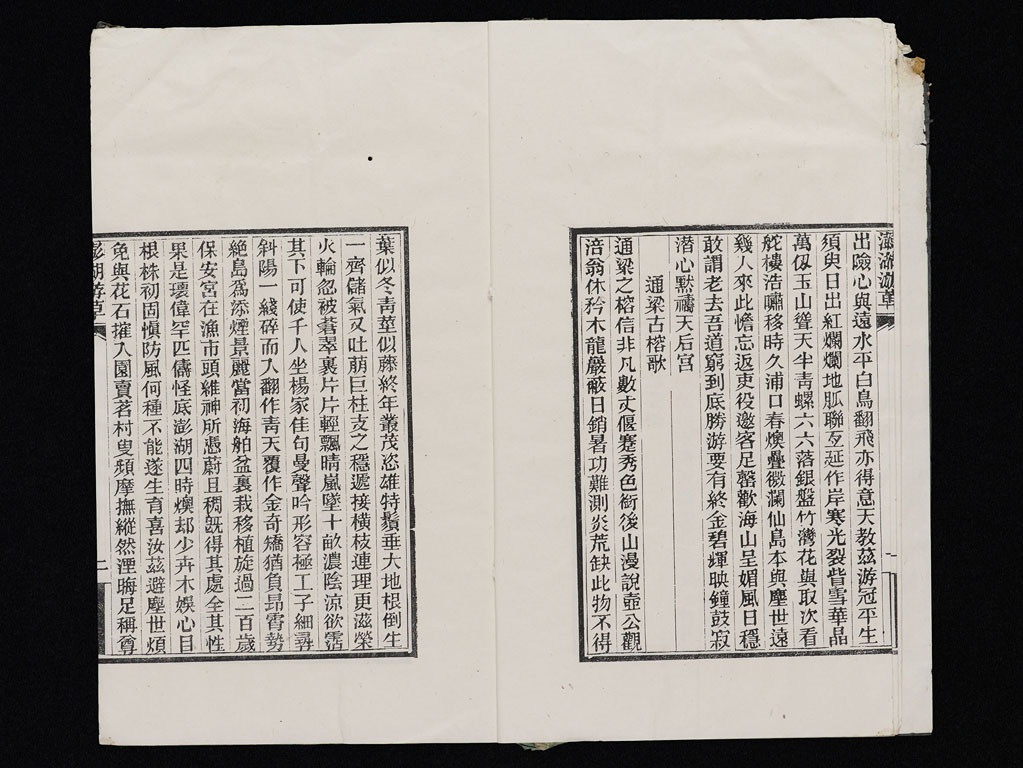 澎湖游草
出險心與遠水平白鳥翻飛亦得意天教茲游冠平生
須臾日出紅爛爛地脈聯亙延作岸寒光裂眥雪華晶
萬仭玉山聳天半靑螺六六落銀盤竹灣花與取次看
舵樓浩嘯移時久浦口春燠疊微瀾仙島本與塵世遠
幾人來此憺忘返吏役邀客足罄歡海山呈媚風日穩
敢謂老去吾道窮到底勝游要有終金碧輝映鐘鼓寂
潜心黙禱天后宫
通梁古榕歌
通梁之榕信非凡數丈偃蹇秀色銜後山漫說壺公觀
涪翁休矜木龍嚴蔽日銷暑功難測炎荒缺此物不得
葉似冬靑莖似藤終年叢茂恣雄特鬚垂大地根倒生
一齊儲氣又吐萠巨柱支之穩遞接橫枝連理更滋榮
火輪忽被蒼翠裹片片輕飄晴嵐墜十畝濃陰涼欲霑
其下可使千人坐楊家佳句曼聲吟形容極工子細尋
斜陽一綫碎而入翻作靑天覆作金奇矯猶負昻霄勢
絶島爲添煙景麗當初海舶盆裏栽移植旋過二百歲
保安宮在漁市頭維神所憑蔚且稠旣得其處全其性
果是瓌偉罕匹儔怪底澎湖四時燠却少卉木娛心目
根株初固愼防風何種不能遂生育喜汝茲避塵世煩
免與花石摧入園賣茗村叟頻摩撫縱然湮晦足稱尊
澎湖游草
二